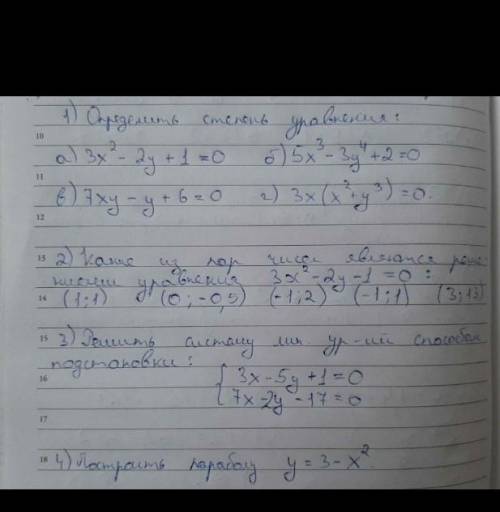 1) Определить степень уравнения:
10
а) 3x² - 2y + 1 = 0 б) 5x³ - 3y⁴ + 2 = 0
11
в) 7xy - y + 6 = 0 г) 3x(x² + y³) = 0.
12
13 2) Какие из пар чисел являются реше
ниями уравнения 3x² - 2y - 1 = 0 :
14 (1; 1) (0; -0,5) (-1; 2) (-1; 1) (3; 13)
15 3) Решить систему лин. ур-ий способом
подстановки:
16 { 3x - 5y + 1 = 0
7x - 2y - 17 = 0
17
18 4) Построить параболу y = 3 - x².